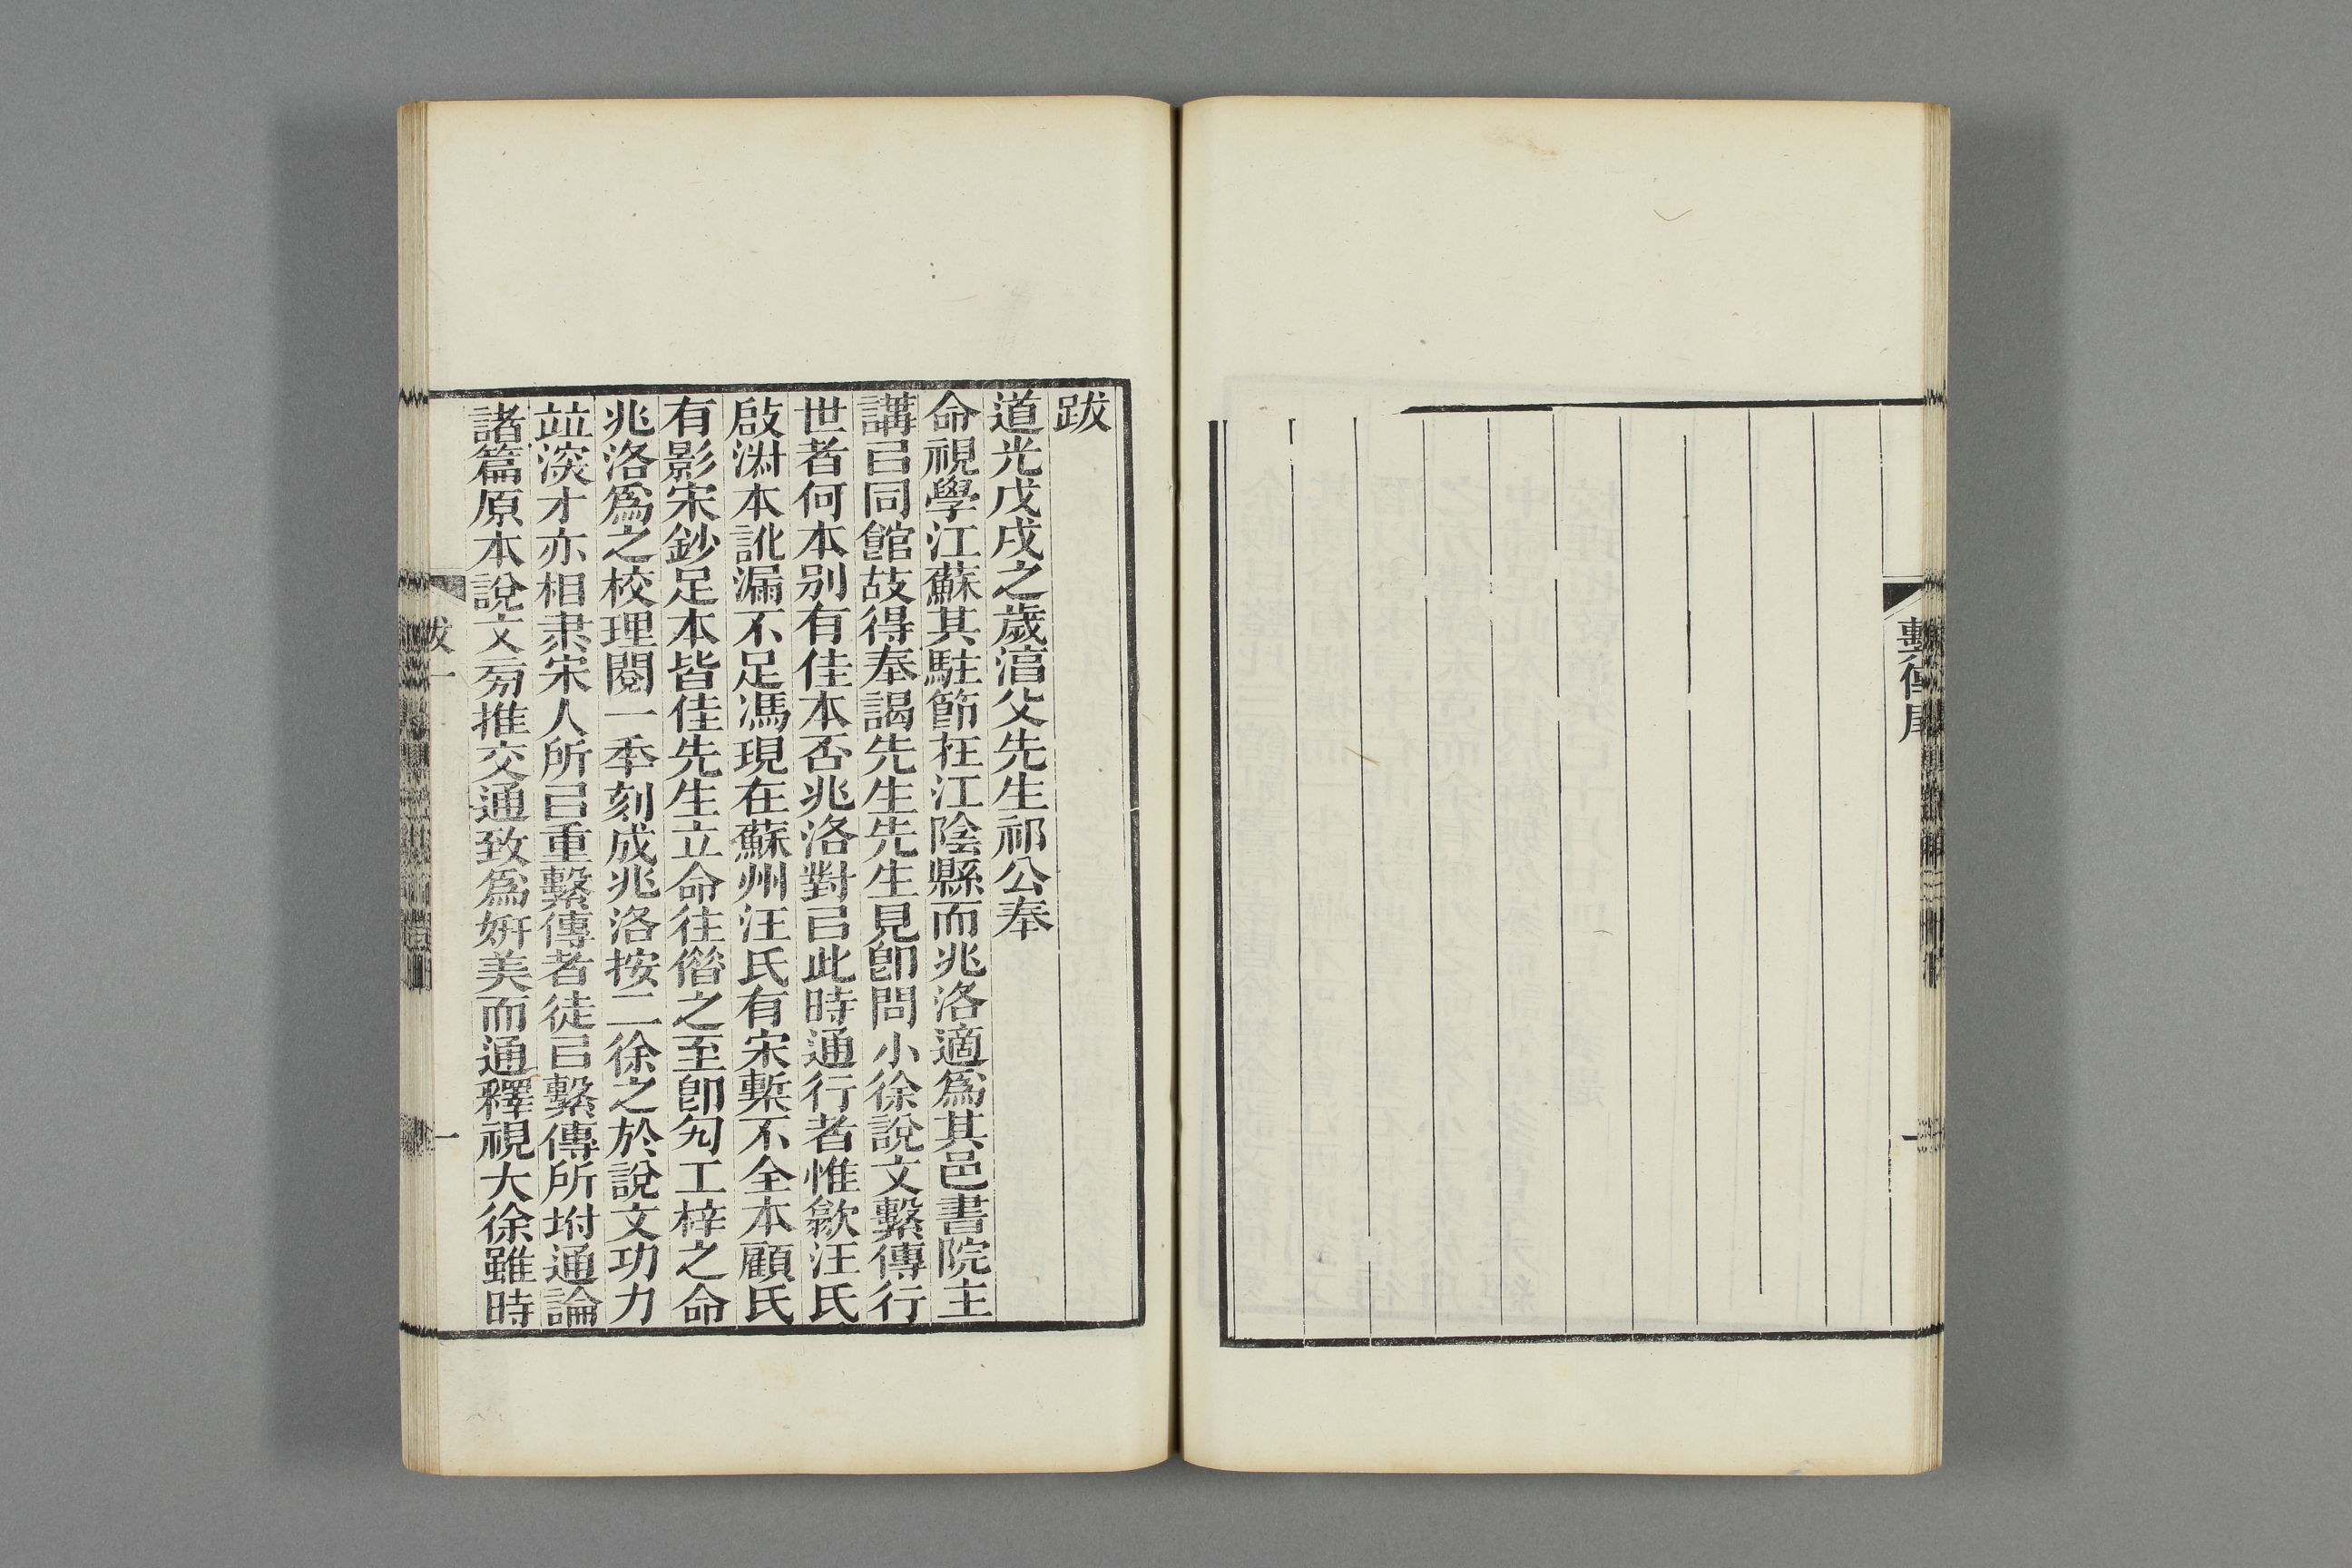 繫傳尾
一
跋
道光戊戌之歲湻父先生祁公奉
命視學江蘇其駐節在江陰縣而兆洛適爲其邑書院主
講㠯同館故得奉謁先生先生見卽問小徐說文繫傳行
世者何本別有佳本否兆洛對㠯此時通行者惟歙汪氏
啟淑本訛漏不足馮現在蘇州汪氏有宋槧不全本顧氏
有影宋鈔足本皆佳先生立命往借之至卽匃工梓之命
兆洛爲之校理閱一秊刻成兆洛按二徐之於說文功力
竝深才亦相隶宋人所㠯重繫傳者徒㠯繫傳所坿通論
諸篇原本說文㫄推交通致爲姸美而通釋視大徐雖時
跋一
一